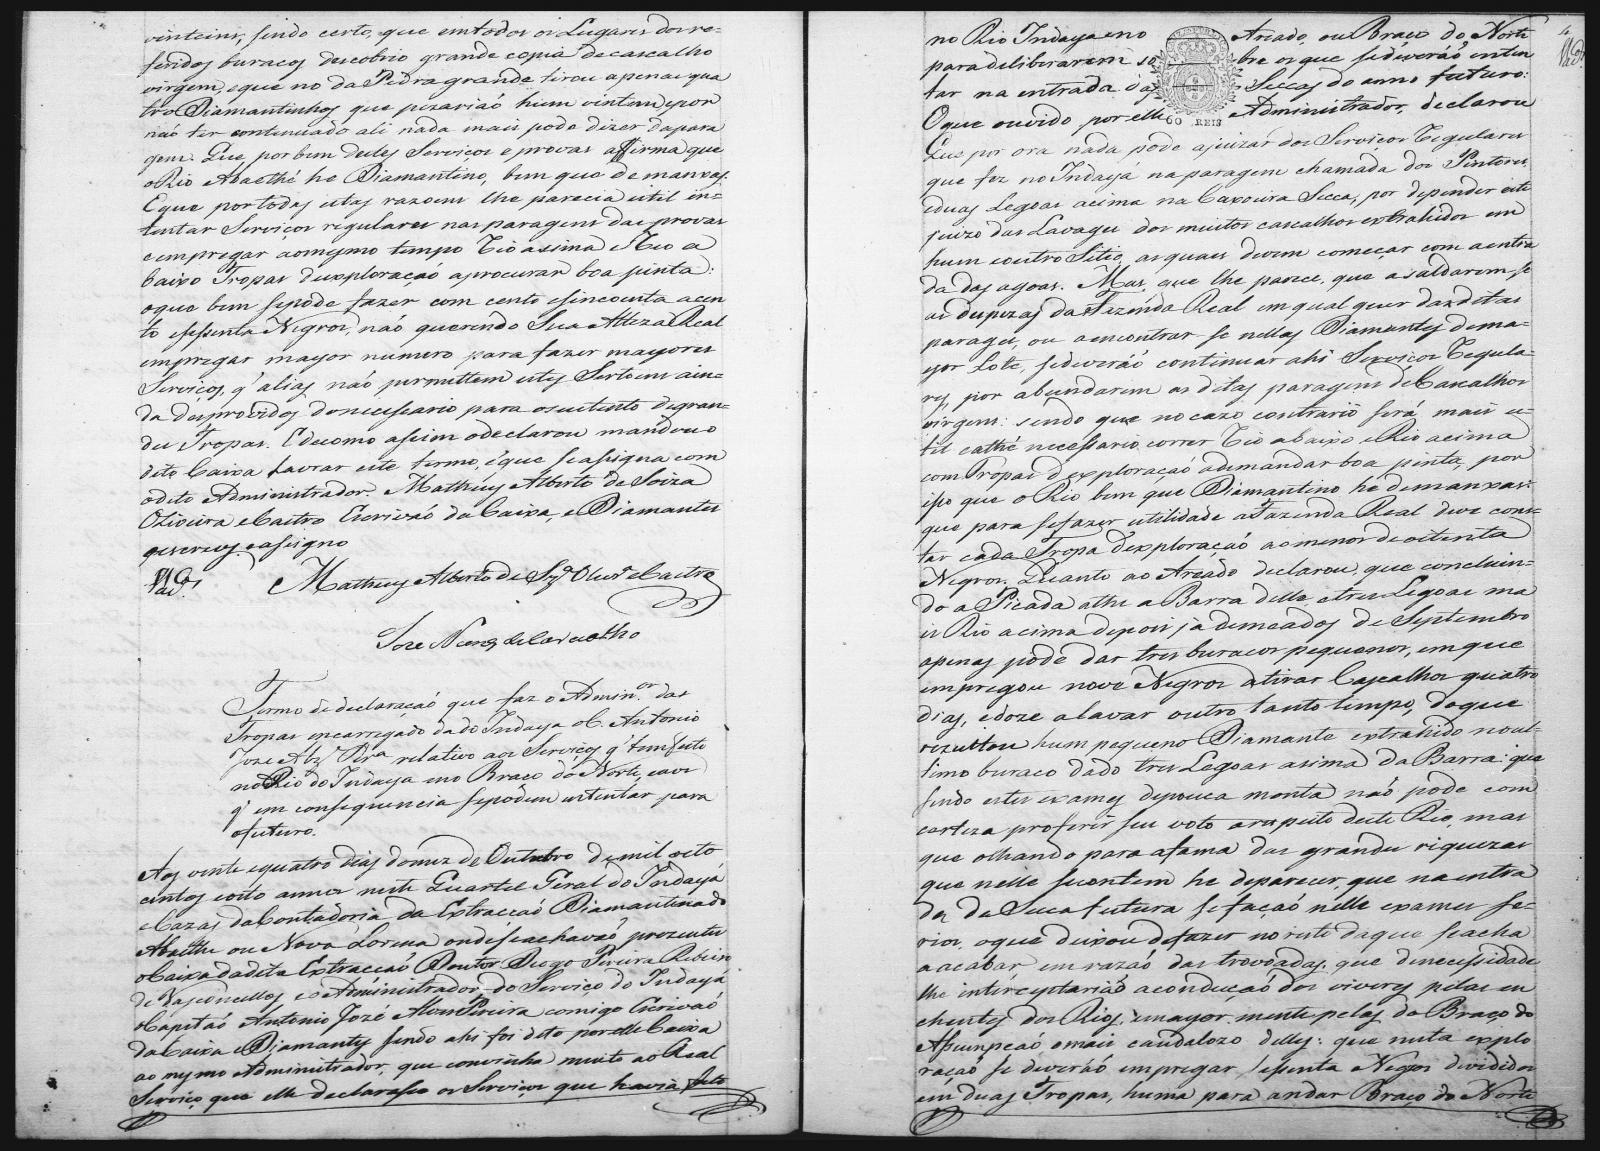 vinteins, sendo certo, que em todos os Lugares dos re=
feridos buracos descobrio grande copia de cascalho
virgem, e que no da Pedra grande tirou apenas qua
tro Diamantinhos que pezariaõ hum vintem, e por
naõ ter continuado ali nada mais pode dizer da para
gem. Que, por bem destes Serviços e provas affirma que
o Rio Abaethé he Diamantino, bem que de manxas.
E que por todas estas razoens lhe parecia util in=
tentar Serviços regulares nas paragens das provas
e empregar ao mesmo tempo Rio assima e Rio a
baixo Tropas d'exploraçaõ a procurar boa pinta:
o que bem se pode fazer com cento e sincoenta a cen
to e sessenta Negros, naõ querendo Sua Alteza Real
empregar mayor numero para fazer mayores
Serviços, q' alias naõ permittem estes Sertoens ain=
da desprovidos do necessario para o sustento de gran=
des Tropas. E de como assim o declarou mandou o
dito Caixa Lavrar este termo, e que se assigna com
o dito Administrador. Matheus Alberto de Soiza
Oliveira e Castro Escrivaõ da Caixa, e Diamantes
que escrevy, e assigno
Matheus Alberto de Sz.ª Olivr.ª e Castro
Joze Nunes de Carvalho
Termo de declaraçaõ que faz o Admin.or das
Tropas encarregado da do Indaya o C. Antonio
Joze Alz' Pr.ª relativo aos Serviços q' tem feito
no Rio do Indaya e no Braço do Norte, e aos
q' em consequencia se podem intentar para
o futuro.
Aos vinte e quatro dias do mez de Outubro de mil oito
centos e oito annos neste Quartel Geral do Indayá
e Cazas da Contadoria da Extracçaõ Diamantina do
Abaethe ou Nova Lorena onde se achavaõ prezentes
o Caixa da dita Extracçaõ Doutor Diogo Pereira Ribeiro
de Vasconcellos, e o Administrador do Serviço do Indayá
o Capitaõ Antonio Jozé Alves Pereira comigo Escrivaõ
da Caixa e Diamantes sendo ahi foi dito por elle Caixa
ao mesmo Administrador, que convinha muito ao Real
Serviço que elle declarasse os Serviços que havia feito
no Rio Indaya e no Areado, ou Braço do Norte
para deliberarem so bre os que se deveraõ inten
tar na entrada das Seccas do anno futuro:
60 REIS
O que ouvido por elle Administrador, declarou
Que por ora nada pode ajuizar dos Serviços Regulares
que fez no Indayá na paragem chamada dos Pintores
e duas Legoas acima na Caxoeira Secca, por depender este
juizo das Lavages dos muitos cascalhos extrahidos em
hum e outro Sitio, as quaes devem começar com a entra
da das agoas. Mas, que lhe parece, que a saldarem-se
as despezas da Fazenda Real em qual quer das ditas
parages, ou a encontrar se nellas Diamantes de ma=
yor Lote, se deveráõ continuar ahi Serviços Regula=
res, por abundarem as ditas paragens de Cascalhos
virgens: sendo que no cazo contrario será mais u=
til e athé necessario correr Rio abaixo e Rio acima
com Tropas d'exploraçaõ a demandar boa pinta, por
isso que o Rio bem que Diamantino he de manxas:
que para se fazer utilidade a Fazenda Real deve cons=
tar cada Tropa d'exploraçaõ ao menos de oitenta
Negros. Quanto ao Areado declarou, que concluin=
do a Picada athe a Barra delle, e tres Legoas ma
is Rio acima depois já de meados de Septembro
apenas pôde dar tres buracos pequenos, em que
empregou nove Negros a tirar Cascalhos quatro
dias, e doze a lavar outro tanto tempo, do que
rezultou hum pequeno Diamante extrahido no ul=
timo buraco dado tres Legoas asima da Barra: que
sendo estes exames de pouca monta naõ pode com
certeza proferir seu voto a respeito deste Rio, mas
que olhando para a fama das grandes riquezas
que nelle se contem he de parecer, que na entra
da da Secca futura se façaõ nelle exames se=
rios, o que deixou de fazer no resto da que se acha
a acabar, em razaõ das trovoadas, que de necessidade
lhe interceptariaõ a conduçaõ dos viveres pelas en
chentes dos Rios, e mayor mente pelas do Braço do
Assumpçaõ o mais caudalozo delles: que nesta explo
raçaõ se deveráõ empregar sessenta Negros divididos
em duas Tropas, huma para andar o Braço do Norte